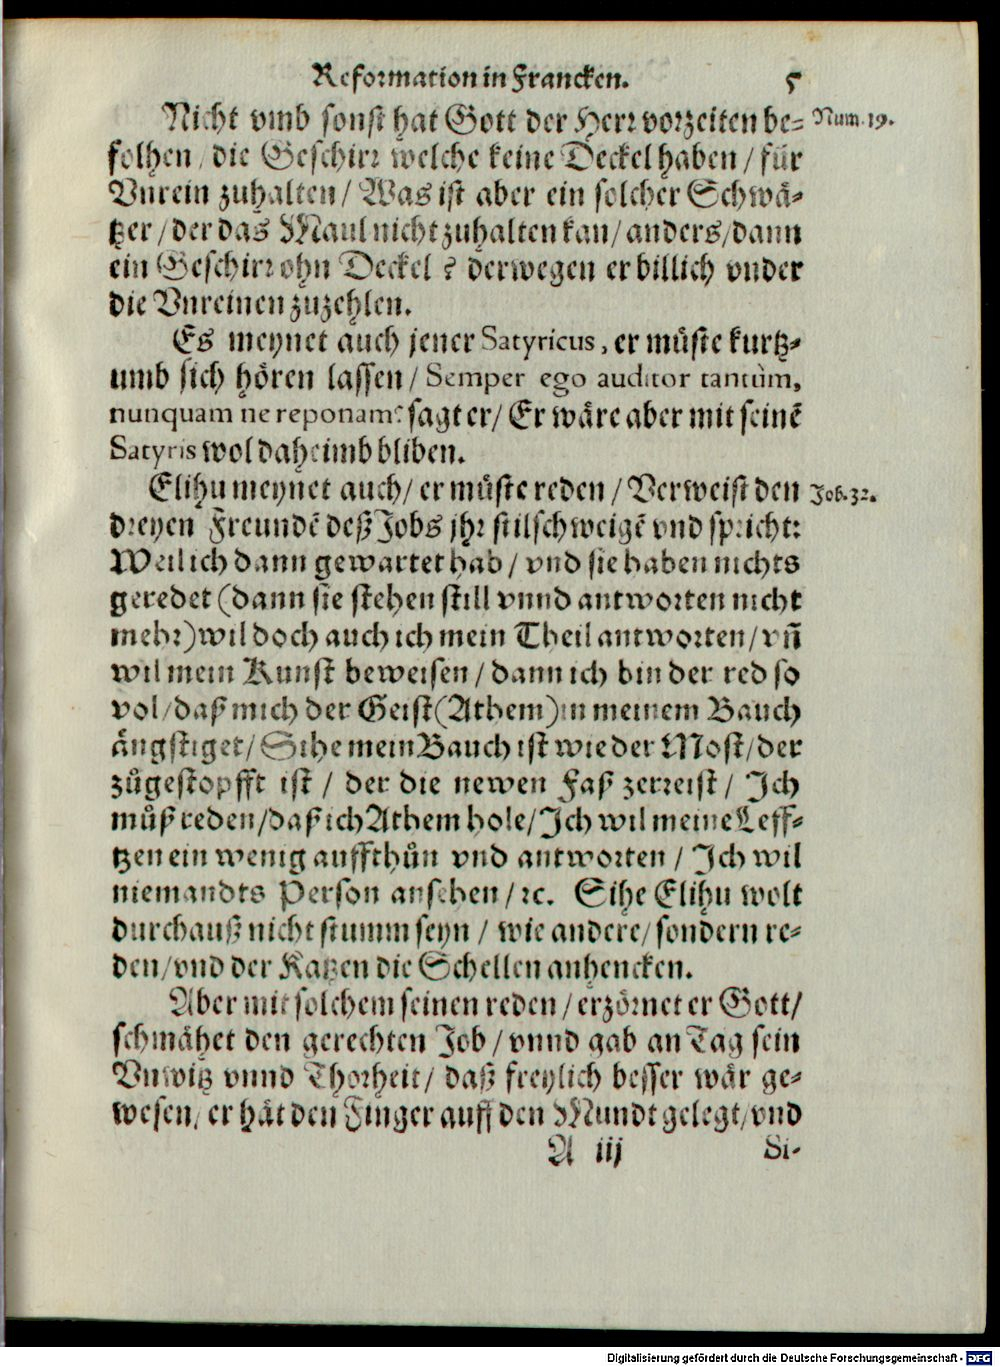 Reformation in Francken. 5
Nicht vmb sonst hat Gott der Herr vorzeiten be- Num. 19.
folhen / die Geschirr welche keine Deckel haben / für
Vnrein zuhalten / Was ist aber ein solcher Schwä-
tzer / der das Maul nicht zuhalten kan / anders / dann
ein Geschirr ohn Deckel ? derwegen er billich vnder
die Vnreinen zuzehlen.
Es meynet auch jener Satyricus, er müste kurtz-
umb sich hören lassen / Semper ego auditor tantùm,
nunquam ne reponam? sagt er / Er wäre aber mit seinē
Satyris wol daheimb bliben.
Elihu meynet auch / er müste reden / Verweist den Job. 32.
dreyen Freundē deß Jobs jhr stilschweigē vnd spricht:
Weil ich dann gewartet hab / vnd sie haben nichts
geredet (dann sie stehen still vnnd antworten nicht
mehr) wil doch auch ich mein Theil antworten / vñ
wil mein Kunst beweisen / dann ich bin der red so
vol / daß mich der Geist (Athem) in meinem Bauch
ängstiget / Sihe mein Bauch ist wie der Most / der
zůgestopfft ist / der die newen Faß zerreist / Ich
můß reden / daß ich Athem hole / Ich wil meine Leff-
tzen ein wenig auffthůn vnd antworten / Ich wil
niemandts Person ansehen / ꝛc. Sihe Elihu wolt
durchauß nicht stumm seyn / wie andere / sondern re-
den / vnd der Katzen die Schellen anhencken.
Aber mit solchem seinen reden / erzörnet er Gott /
schmähet den gerechten Job / vnnd gab an Tag sein
Vnwitz vnnd Thorheit / daß freylich besser wär ge-
wesen / er hät den Finger auff den Mundt gelegt / vnd
A iij Si-
Digitalisierung gefördert durch die Deutsche Forschungsgemeinschaft - DFG